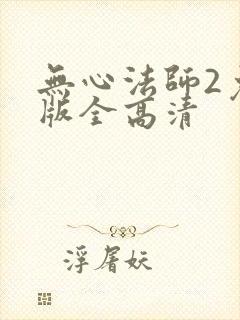 無心法師2
版全高清
浮屠妖